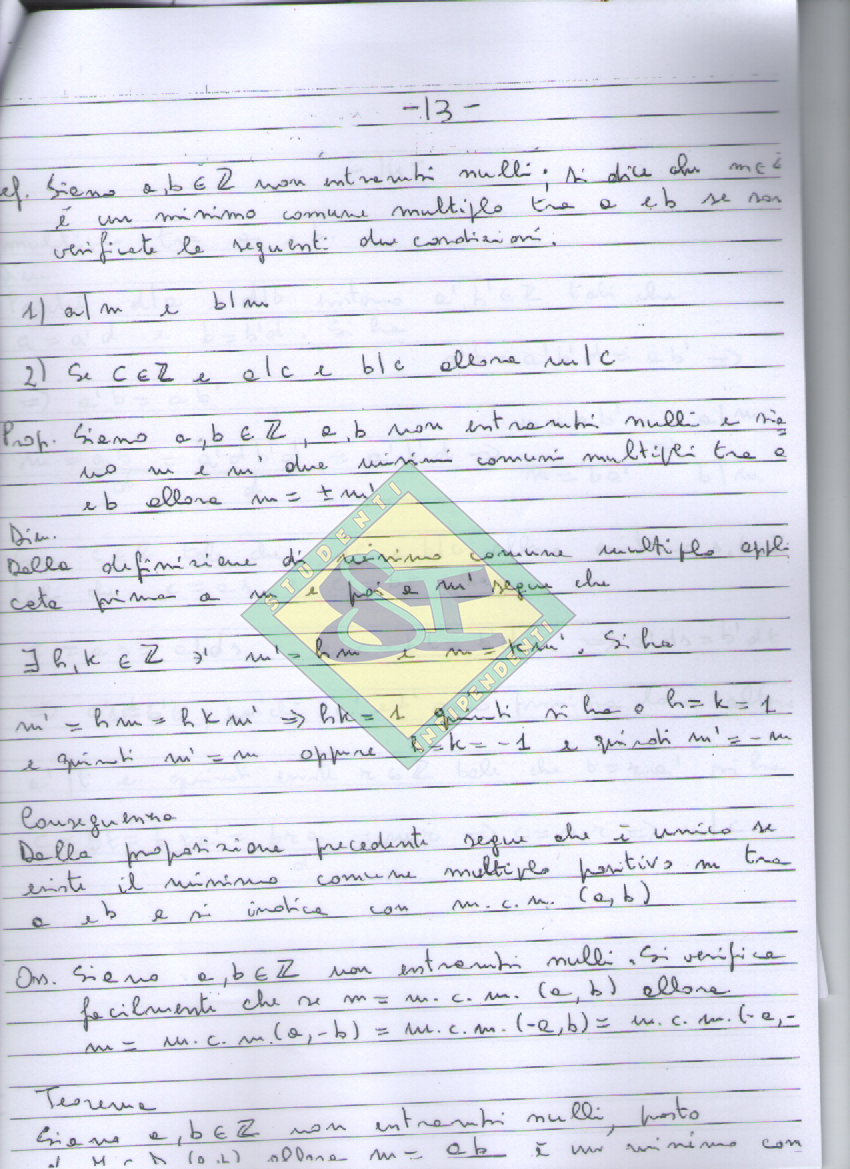 -13-
ef. Siano a,b ∈ ℤ non entrambi nulli; si dice che m ∈ ℤ
è un minimo comune multiplo tra a e b se son
verificate le seguenti due condizioni.
1) a|m e b|m
2) Se C ∈ ℤ e a|c e b|c allora m|C
Prop. Siano a,b ∈ ℤ, a,b non entrambi nulli e sia
no m e m' due minimi comuni multipli tra a
e b allora m = ± m'
Dim.
Dalla definizione di minimo comune multiplo appli
cata prima a m e poi a m' segue che
∃ h,k ∈ ℤ ∋' m' = hm e m = km'. Si ha
m' = hm = hkm' ⇒ hk = 1 quindi si ha o h = k = 1
e quindi m' = m oppure h = k = -1 e quindi m' = -m
Conseguenza
Dalla proposizione precedente segue che è unico se
esiste il minimo comune multiplo positivo m tra
a e b e si indica con m.c.m. (a,b)
Oss. Siano a,b ∈ ℤ non entrambi nulli. Si verifica
facilmente che se m = m.c.m. (a,b) allora
m = m.c.m.(a,-b) = m.c.m.(-a,b) = m.c.m.(-a,-
Teorema
Siano a,b ∈ ℤ non entrambi nulli, posto
allora m = ab è un minimo com
STUDENTI
SI
INDIPENDENTI